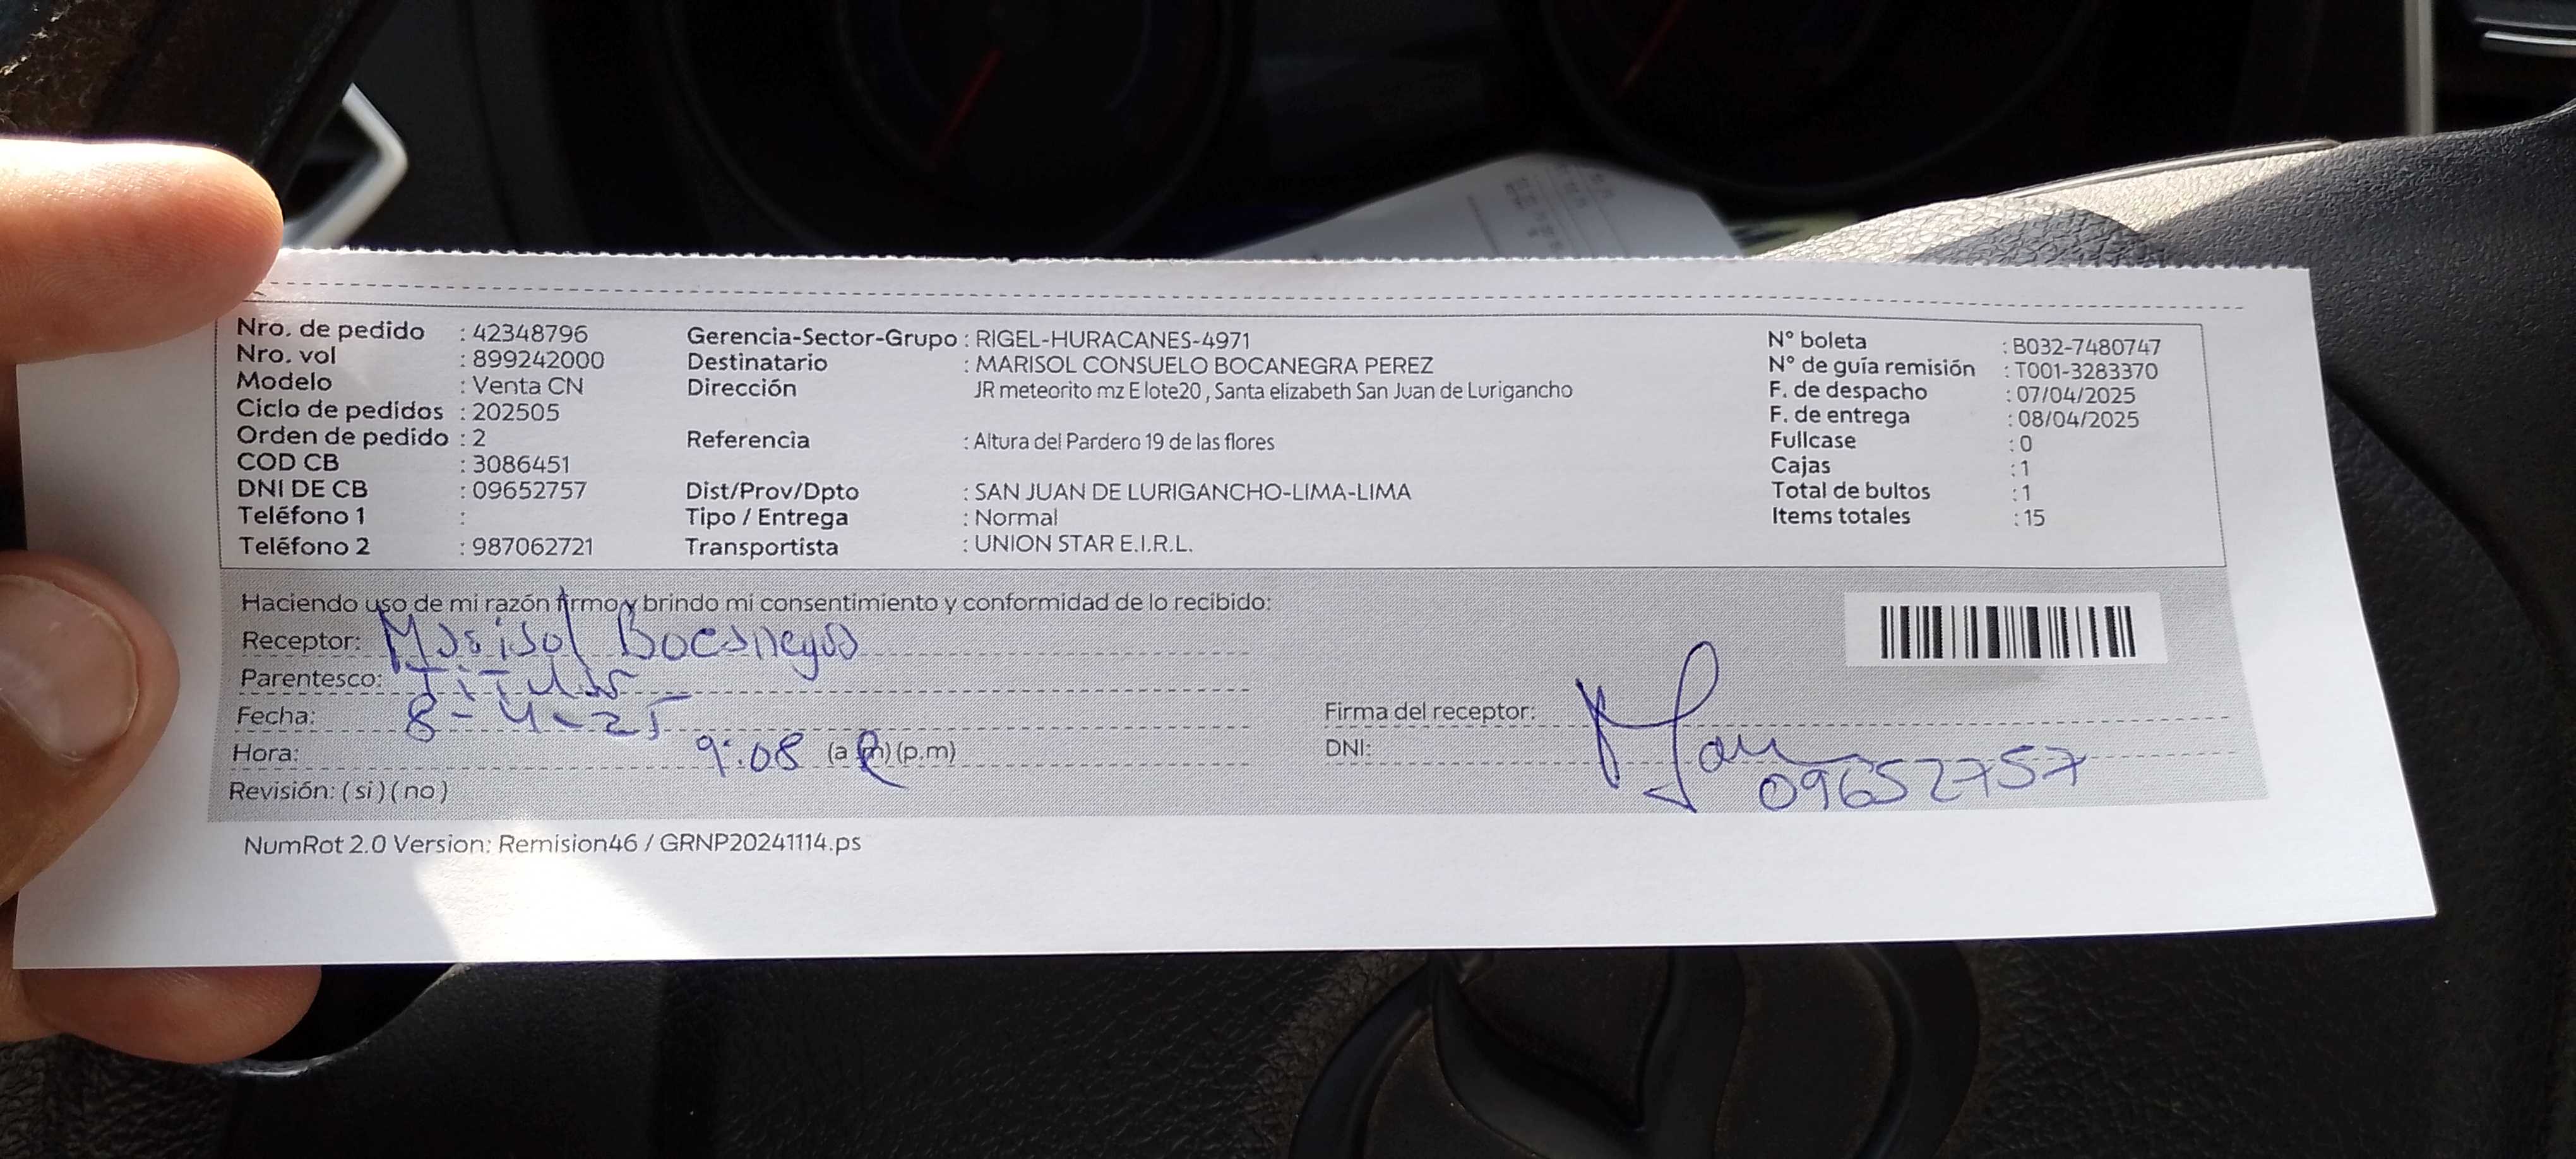 Nro. de pedido : 42348796 Gerencia-Sector-Grupo : RIGEL-HURACANES-4971 N° boleta : B032-7480747
Nro. vol : 899242000 Destinatario : MARISOL CONSUELO BOCANEGRA PEREZ N° de guía remisión : T001-3283370
Modelo : Venta CN Dirección JR meteorito mz E lote20 , Santa elizabeth San Juan de Lurigancho F. de despacho : 07/04/2025
Ciclo de pedidos : 202505 F. de entrega : 08/04/2025
Orden de pedido : 2 Referencia : Altura del Pardero 19 de las flores Fullcase : 0
COD CB : 3086451 Cajas : 1
DNI DE CB : 09652757 Dist/Prov/Dpto : SAN JUAN DE LURIGANCHO-LIMA-LIMA Total de bultos : 1
Teléfono 1 : Tipo / Entrega : Normal Items totales : 15
Teléfono 2 : 987062721 Transportista : UNION STAR E.I.R.L.
Haciendo uso de mi razón firmo y brindo mi consentimiento y conformidad de lo recibido:
Receptor: Marisol Bocanegra
Parentesco: Titular
Fecha: 8-4-25 Firma del receptor:
Hora: 9:08 (a m) (p.m) DNI: 09652757
Revisión: ( si ) ( no )
NumRot 2.0 Version: Remision46 / GRNP20241114.ps